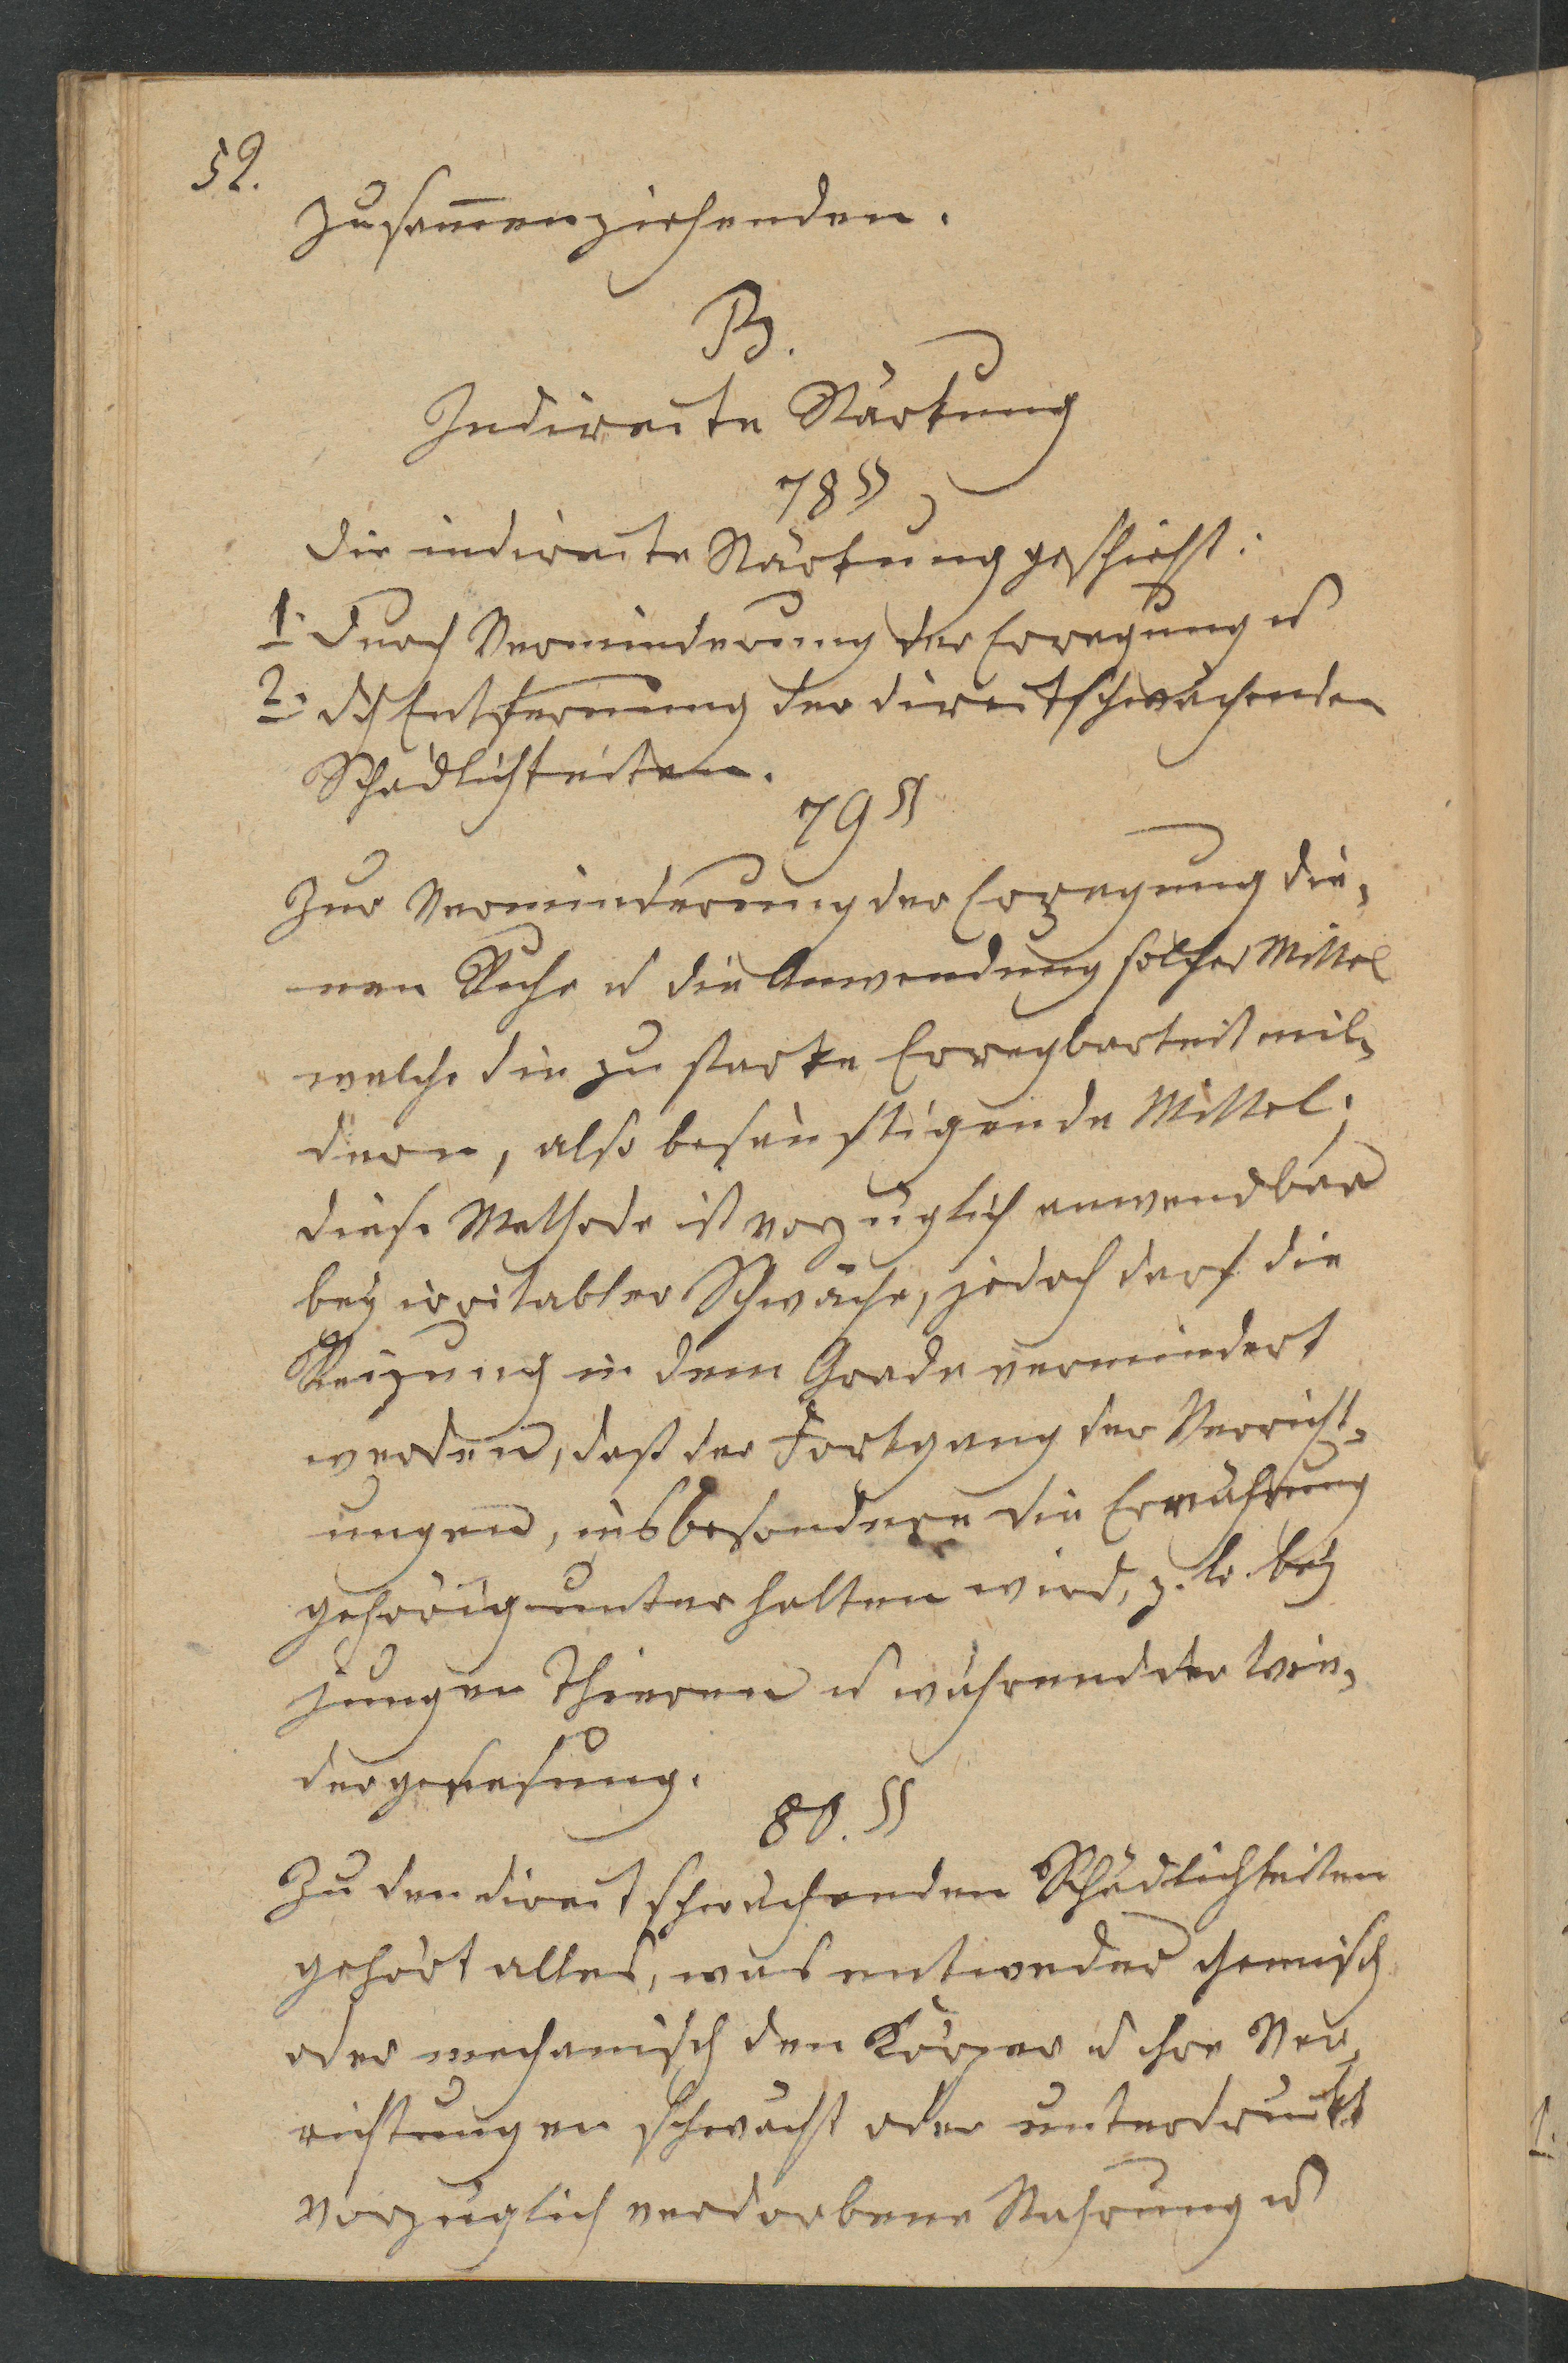 52.
zusam̅enziehenden.
B.
Indirecte Stärkung
78 §
Die indirecte Stärkung geschieht:
1. Durch Verminderung der Erregung u
2. dch Entfernung der direct schwächenden
Schädlichkeiten.
79 §
Zur Verminderung der Erregung die-
nen Ruhe u die Anwendung solcher Mittel
welche die zu starke Erregbarkeit mil-
dern, also besänftigende Mittel;
diese Methode ist vorzüglich anwendbar
bey irritabler Schwäche, jedoch darf die
Reizung in dem Grade vermindert
werden, daß der Fortgang der Verricht-
ungen, insbesondere die Ernährung
gehörig unterhalten wird, z. B. bey
jungen Thieren u während der Wie-
dergenesung.
80. §
Zu den direct schwächenden Schädlichkeiten
gehört alles, was entweder chemisch
oder mechanisch den Körper u ihre Ver-
richtungen schwächt oder unterdrückt
vorzüglich verdorbene Nahrung u
1.